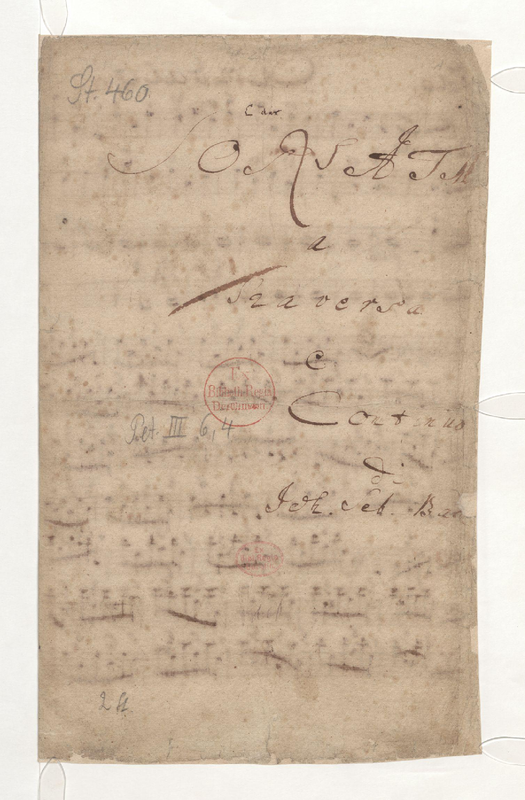 St. 460.
C dur
SONATA
a
Traversa
e
Continuo
di
Joh. Seb. Bac
Ex
Biblioth. Regia
Berolinensi.
Pet. III 6, 4
2 St.